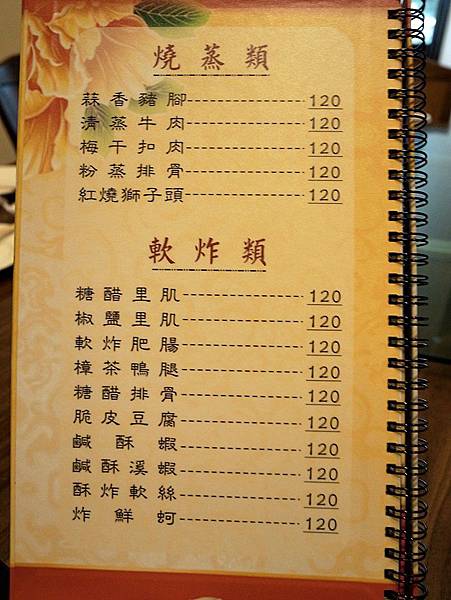 燒蒸類
蒜香豬腳 120
清蒸牛肉 120
梅干扣肉 120
粉蒸排骨 120
紅燒獅子頭 120
軟炸類
糖醋里肌 120
椒鹽里肌 120
軟炸肥腸 120
樟茶鴨腿 120
糖醋排骨 120
脆皮豆腐 120
鹹酥蝦 120
鹹酥溪蝦 120
酥炸軟絲 120
炸鮮蚵 120